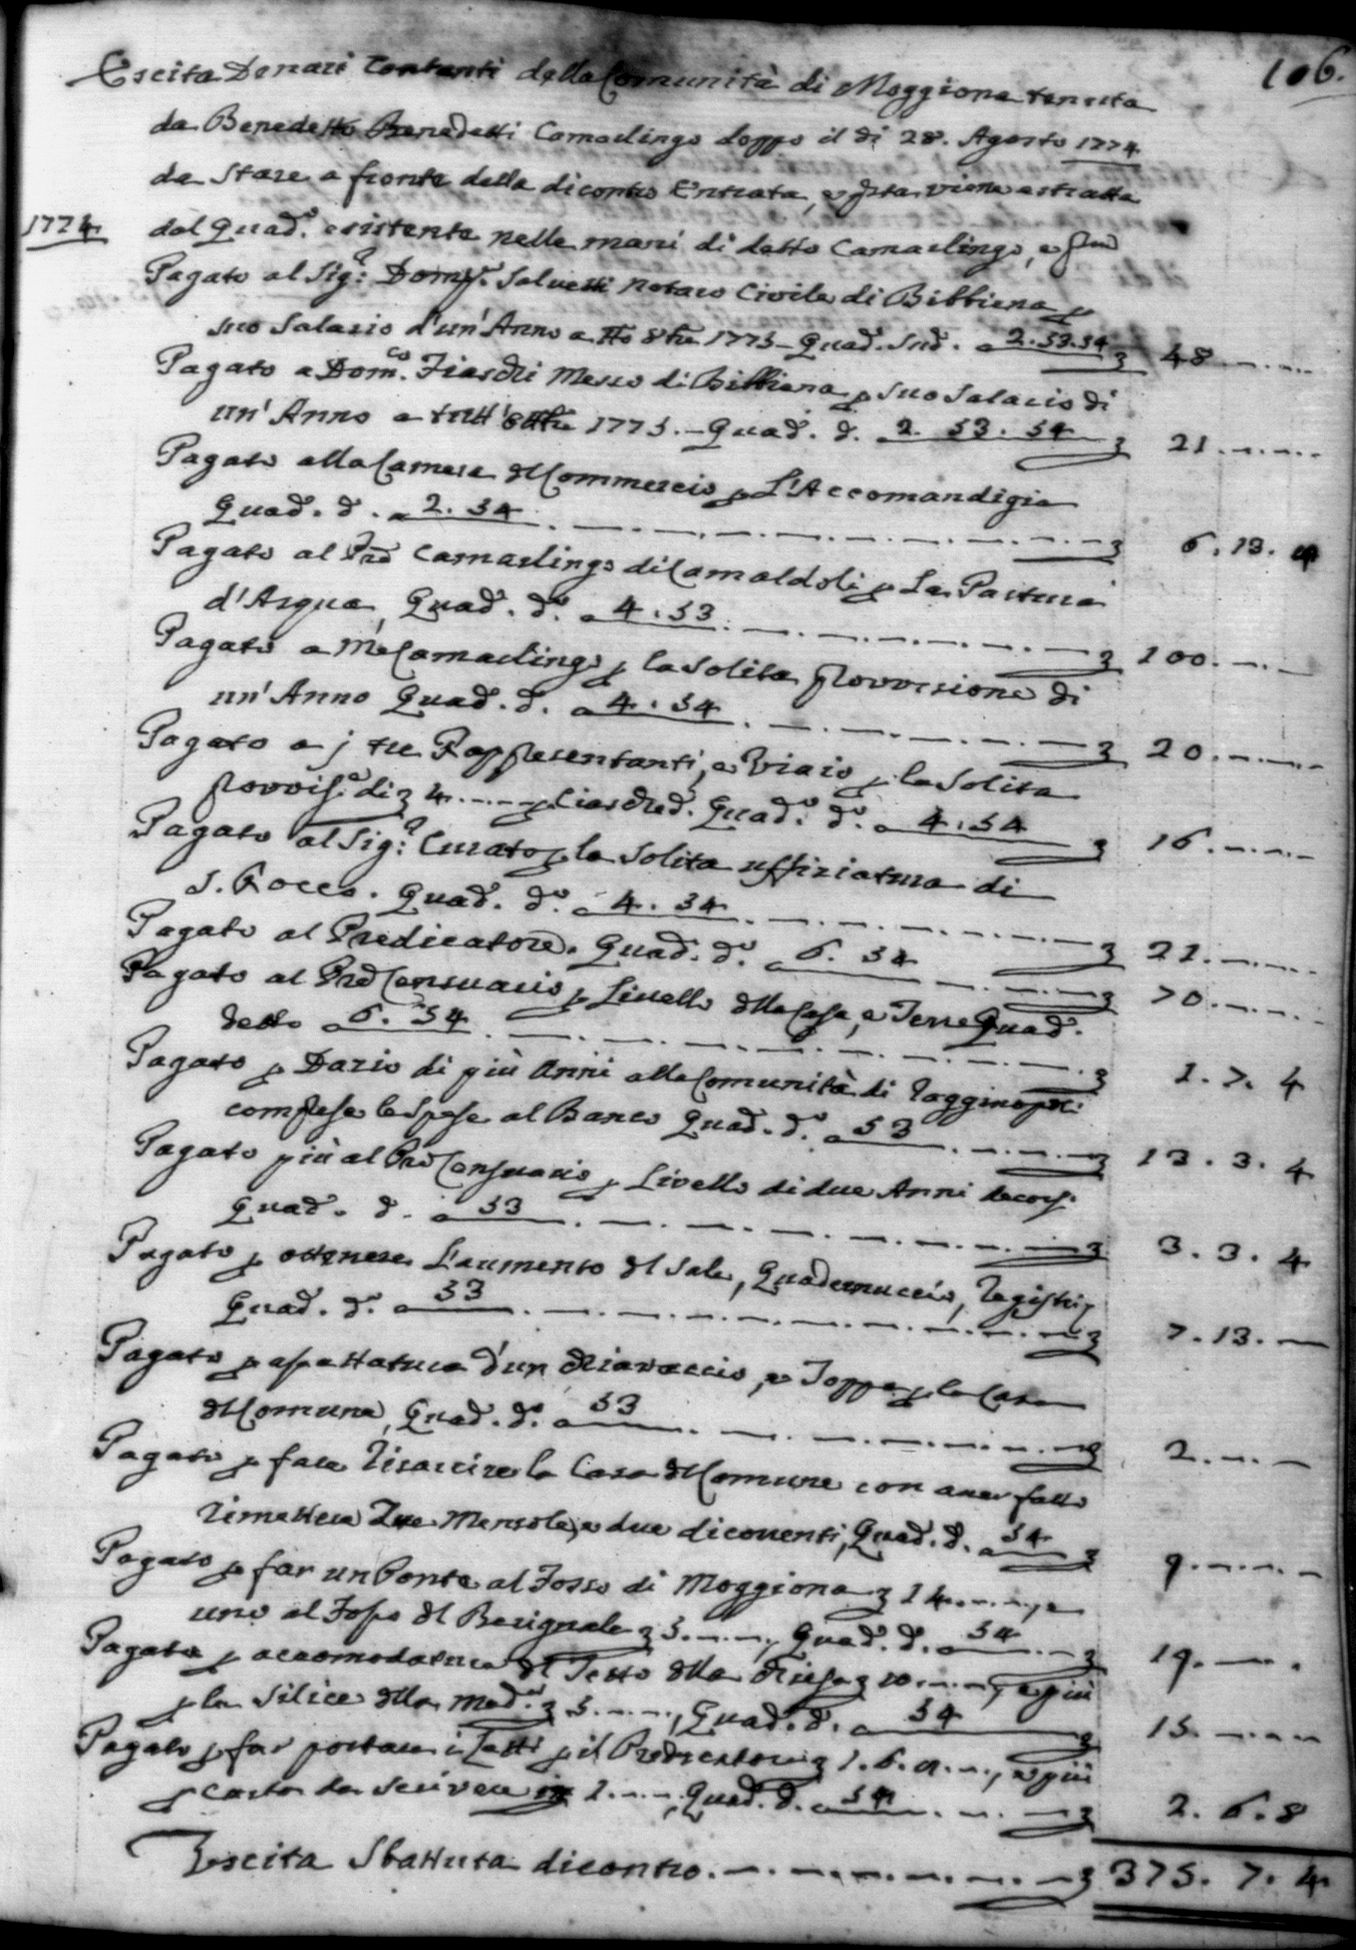 106.
Escita Denari Contanti della Comunità di Moggiona tenuta
da Benedetto Benedetti Camarlingo doppo il dì 28. Agosto 1774
da Stare a fronte della dicontro Entrata, e qsta viene estratta
1774 dal Quad.o esistente nelle mani di detto Camarlingo, e pmd
Pagato al Sig.r Dom.co Salvetti Notaro Civile di Bibbiena p
suo Salario d'un' Anno a tto 8bre 1773 - Quad. Sud. a 2.53.54 48 . — . —
Pagato a Dom.co Fiaschi Messo di Bibbiena p suo Salario di
un' Anno a tutt' 8bre 1773. — Quad. d. a 2. 53. 54 21 . — . —
Pagato alla Camera dl Commercio p L'Accomandigia
Quad. d. a 2. 54 6. 13. 4
Pagato al Pre Camarlingo di Camaldoli p La Pastura
d'Acqua, Quad. d.o a 4. 53 100 . — . —
Pagato a Me Camarlingo p la solita provvisione di
un' Anno Quad. d. a 4. 54 20 . — . —
Pagato a j tre Rappresentanti, e Viaio p la Solita
provvis.e di 4 . — . — p Ciasched. Quad.o d.o a 4. 54 16 . — . —
Pagato al Sig.r Curato p la Solita uffiziatura di
S. Rocco. Quad. d.o a 4. 54 21 . — . —
Pagato al Predicatore. Quad. d.o a 6. 54 70 . — . —
Pagato al Pre Censuario p Livello dlla Casa, e Terre Quad.
detto a 6. 54 1. 7. 4
Pagato p Dazio di più Anni alla Comunità di Raggiopoli
comprese le Spese al Banco Quad. d.o a 53 13. 3. 4
Pagato più al Pre Censuario p Livello di due Anni decorsi
Quad. d. a 53 3. 3. 4
Pagato p ottenere L'aumento dl Sale, Quadernuccio, Registri p
Quad. d. a 53 7. 13. —
Pagato p aspettatura d'un chiavaccio, e Toppa p la Casa
dl Comune, Quad. d. a 53 2 . — . —
Pagato p fare risarcire la Casa dl Comune con aver fatto
rimettere Due Mensole, e due dicorrenti, Quad. d. a 54 9 . — . —
Pagato p far un Ponte al Fosso di Moggiona 14 . — . —, e
uno al Fosso dl Besignale 5 . — . —, Quad. d. a 54 19 . — .
Pagato p accomodatura dl Tetto dlla Chiesa 10 . — . —, e più
p la Silice dlla Mad.a 5 . — . —, Quad. d. a 54 15 . — . —
Pagato p far portare i Letti p il Predicatore 1. 6. 8 . —, e più
p carta da scrivere 1 . — . — Quad. d. a 54 2. 6. 8
Escita Sbattuta dicontro 375. 7. 4